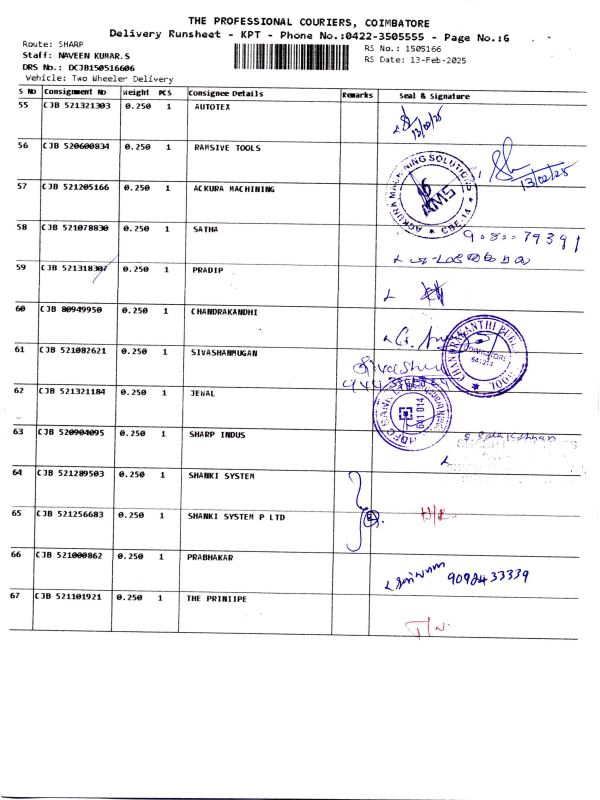 THE PROFESSIONAL COURIERS, COIMBATORE
Delivery Runsheet - KPT - Phone No.:0422-3505555 - Page No.:6
Route: SHARP
RS No.: 1505166
Staff: NAVEEN KUMAR.S
RS Date: 13-Feb-2025
DRS No.: DCJB150516606
Vehicle: Two Wheeler Delivery
S No Consignment No Weight PCS Consignee Details Remarks Seal & Signature
55 CJB 521321303 0.250 1 AUTOTEX
13/02/25
56 CJB 520600834 0.250 1 RAMSIVE TOOLS
13/02/25
57 CJB 521205166 0.250 1 ACKURA MACHINING
ACKURA MACHINING SOLUTIONS
AMS
CBE-14
58 CJB 521078830 0.250 1 SATHA
59 CJB 521318307 0.250 1 PRADIP
60 CJB 80949950 0.250 1 CHANDRAKANDHI
61 CJB 521082621 0.250 1 SIVASHANMUGAN
COIMBATORE
62 CJB 521321184 0.250 1 JEWAL
HDFC BANK
641 014
63 CJB 520904095 0.250 1 SHARP INDUS
64 CJB 521289503 0.250 1 SHANKI SYSTEM
65 CJB 521256683 0.250 1 SHANKI SYSTEM P LTD
66 CJB 521000862 0.250 1 PRABHAKAR
67 CJB 521101921 0.250 1 THE PRINIIPE